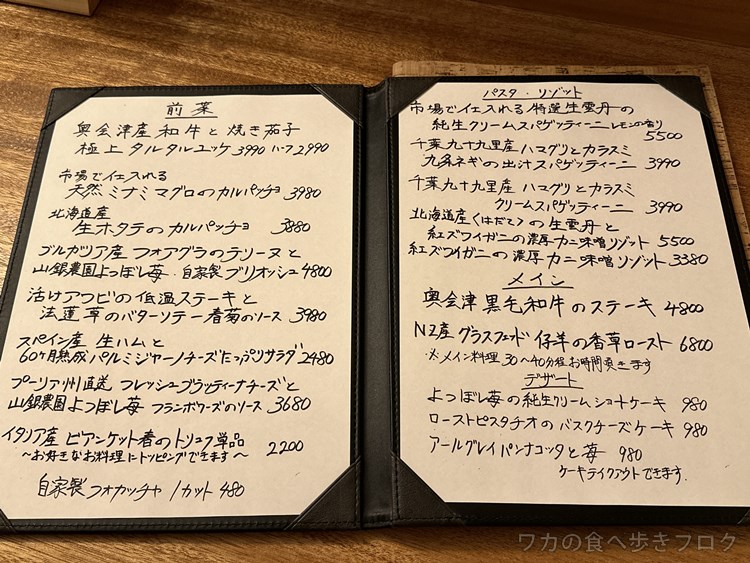 前菜
奥会津産和牛と焼き茄子
極上タルタルユッケ 3990 ハーフ2990
市場で仕入れる
天然ミナミマグロのカルパッチョ 3980
北海道産
生ホタテのカルパッチョ 3880
ブルガリア産 フォアグラのテリーヌと
山銀農園よつぼし苺・自家製ブリオッシュ 4800
活けアワビの低温ステーキと
法蓮草のバターソテー 春菊のソース 3980
スペイン産 生ハムと
60ヶ月熟成パルミジャーノチーズたっぷりサラダ 2480
プーリア州直送 フレッシュブラッティーナチーズと
山銀農園よつぼし苺 フランボワーズのソース 3680
イタリア産 ビアンケット春のトリュフ単品 2200
～お好きなお料理にトッピングできます～
自家製フォカッチャ 1カット 480
パスタ・リゾット
市場で仕入れる特選生雲丹の
純生クリームスパゲッティーニ レモンの香り 5500
千葉九十九里産 ハマグリとカラスミ
九条ネギの出汁スパゲッティーニ 3990
千葉九十九里産 ハマグリとカラスミ
クリームスパゲッティーニ 3990
北海道産(はだて)の生雲丹と
紅ズワイガニの濃厚カニ味噌リゾット 5500
紅ズワイガニの濃厚カニ味噌リゾット 3380
メイン
奥会津黒毛和牛のステーキ 4800
NZ産グラスフェッド仔羊の香草ロースト 6800
※メイン料理30～40分程お時間頂きます
デザート
よつぼし苺の純生クリームショートケーキ 980
ローストピスタチオのバスクチーズケーキ 980
アールグレイパンナコッタと苺 980
ケーキテイクアウトできます。
ワカの食べ歩きブログ